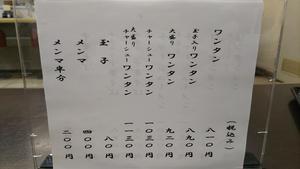 ワンタン 八一〇円
玉子入りワンタン 八九〇円
大盛りワンタン 九二〇円
チャーシューワンタン 一〇三〇円
大盛りチャーシューワンタン 一一三〇円
玉子 八〇円
メンマ 四〇〇円
メンマ半分 二〇〇円
(税込み)